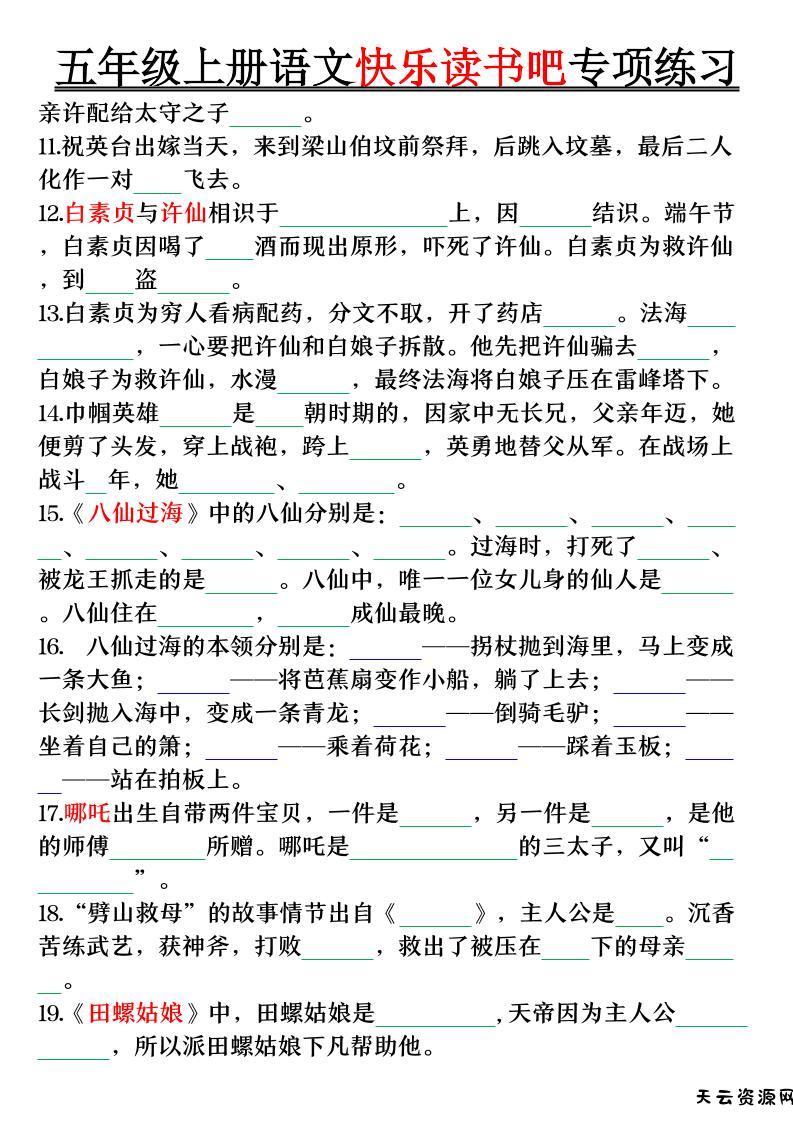 五年级上册语文快乐读书吧专项练习
亲许配给太守之子______。
11.祝英台出嫁当天，来到梁山伯坟前祭拜，后跳入坟墓，最后二人
化作一对____飞去。
12.白素贞与许仙相识于______________上，因______结识。端午节
，白素贞因喝了____酒而现出原形，吓死了许仙。白素贞为救许仙
，到____盗______。
13.白素贞为穷人看病配药，分文不取，开了药店______。法海____
________，一心要把许仙和白娘子拆散。他先把许仙骗去______，
白娘子为救许仙，水漫______，最终法海将白娘子压在雷峰塔下。
14.巾帼英雄______是____朝时期的，因家中无长兄，父亲年迈，她
便剪了头发，穿上战袍，跨上______，英勇地替父从军。在战场上
战斗__年，她________、________。
15.《八仙过海》中的八仙分别是：______、______、______、____
__、______、______、______、______。过海时，打死了______、
被龙王抓走的是______。八仙中，唯一一位女儿身的仙人是______
。八仙住在________，______成仙最晚。
16. 八仙过海的本领分别是：______——拐杖抛到海里，马上变成
一条大鱼；______——将芭蕉扇变作小船，躺了上去；______——
长剑抛入海中，变成一条青龙；______——倒骑毛驴；______——
坐着自己的箫；______——乘着荷花；______——踩着玉板；____
__——站在拍板上。
17.哪吒出生自带两件宝贝，一件是______，另一件是______，是他
的师傅________所赠。哪吒是______________的三太子，又叫“__
________”。
18.“劈山救母”的故事情节出自《______》，主人公是____。沉香
苦练武艺，获神斧，打败______，救出了被压在____下的母亲____
__。
19.《田螺姑娘》中，田螺姑娘是__________,天帝因为主人公______
______，所以派田螺姑娘下凡帮助他。
天云资源网